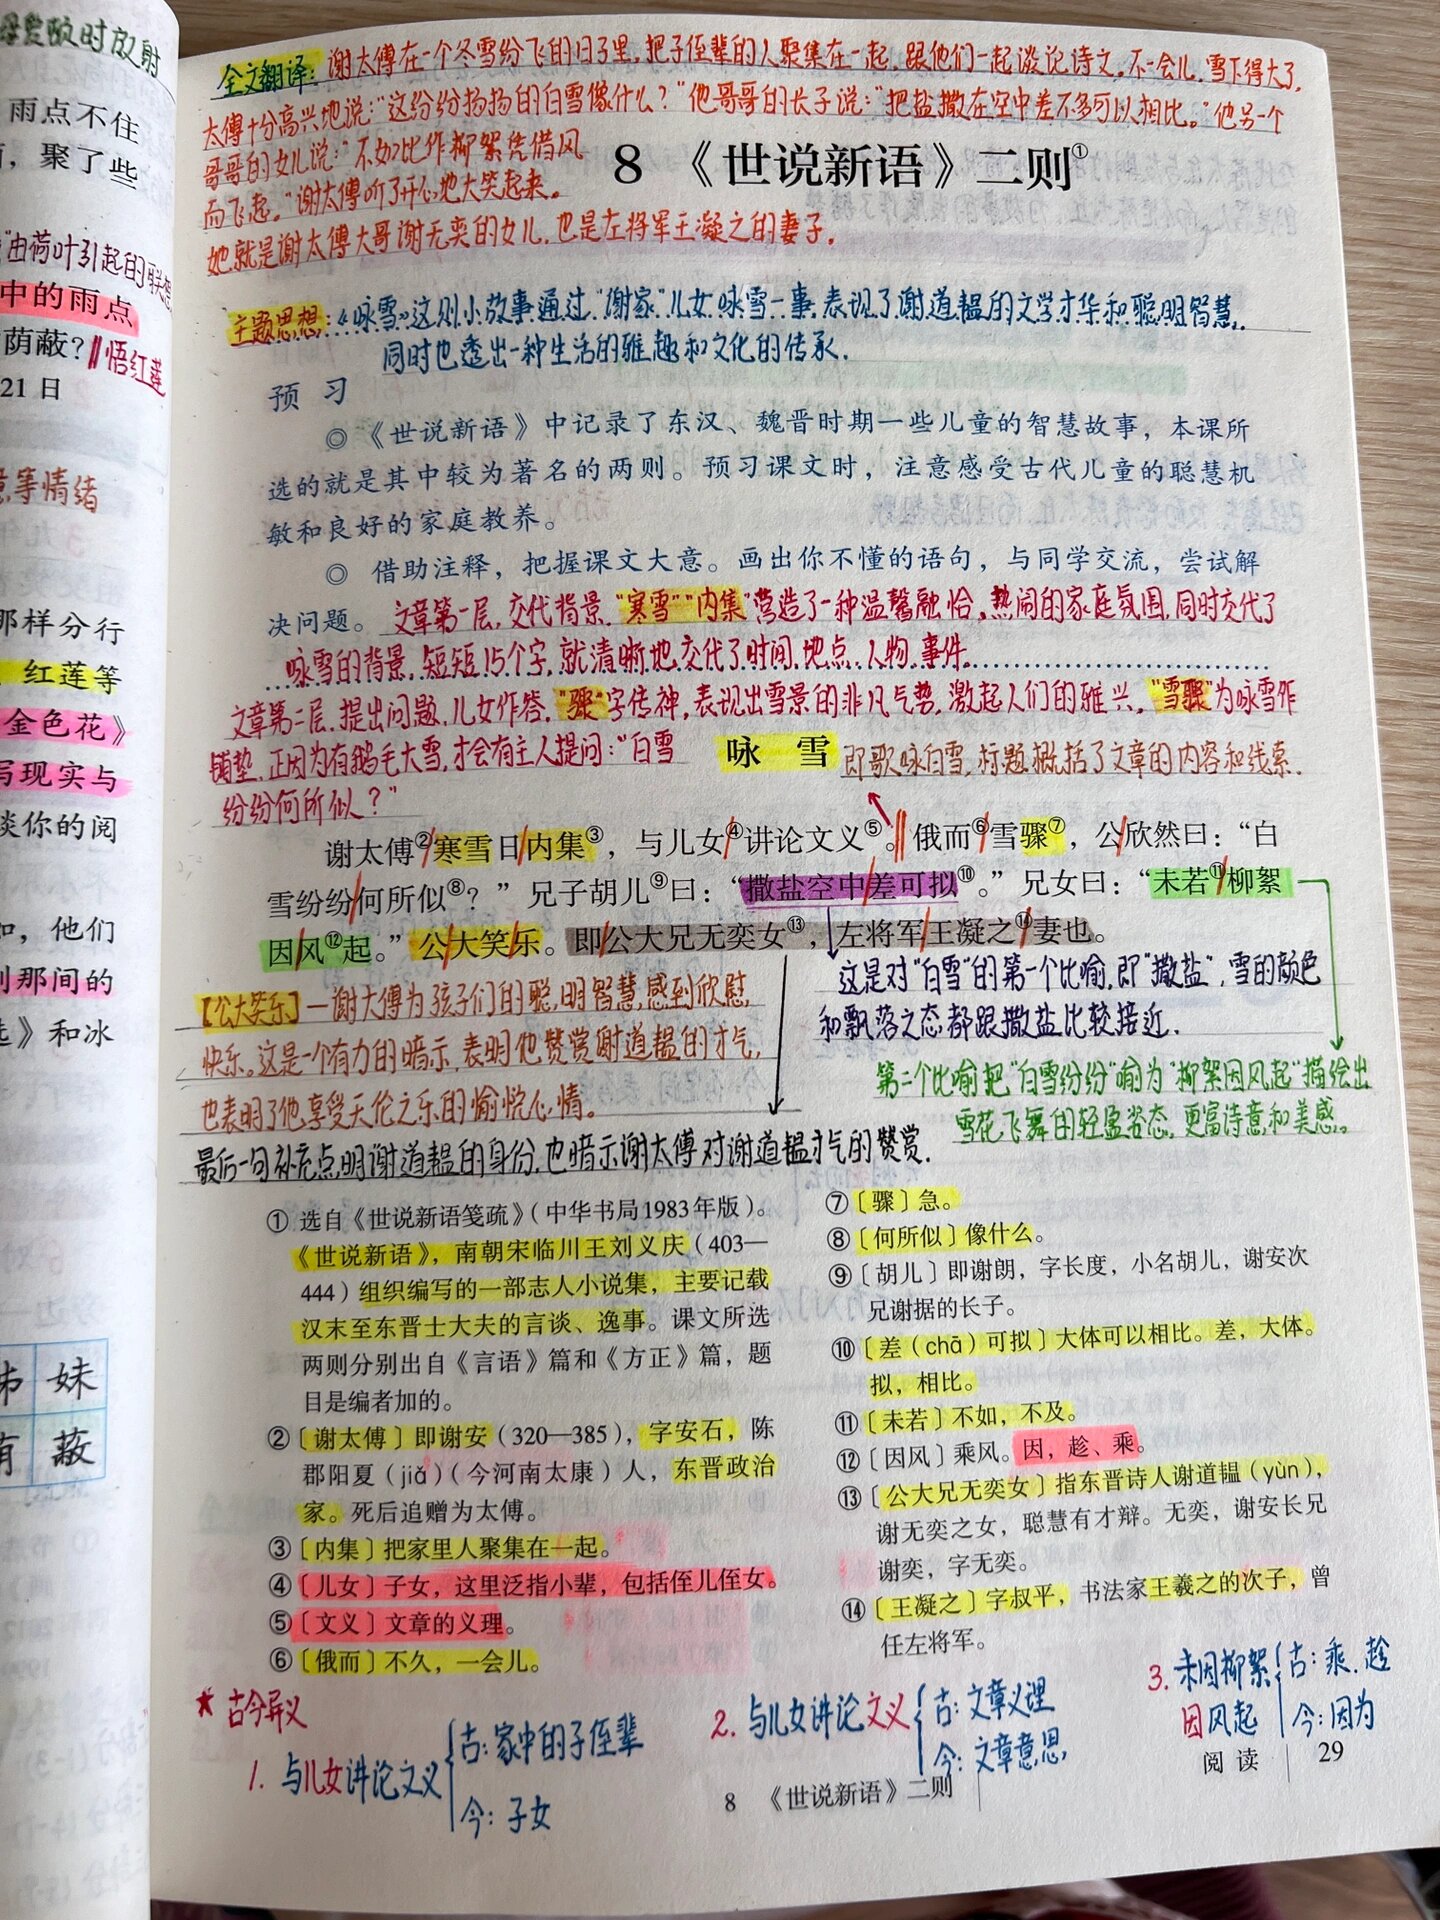 母爱敞时放射
雨点不住
，聚了些
"由荷叶引起的联想
中的雨点
荫蔽？‖悟红莲
21 日
等情绪
那样分行
红莲等
金色花》
写现实与
谈你的阅
如，他们
刹那间的
》和冰
姊 妹
蔽
全文翻译：谢太傅在一个冬雪纷飞的日子里，把子侄辈的人聚集在一起，跟他们一起谈论诗文。不一会儿，雪下得大了，
太傅十分高兴地说："这纷纷扬扬的白雪像什么？"他哥哥的长子说："把盐撒在空中差不多可以相比。"他另一个
哥哥的女儿说："不如比作柳絮凭借风
而飞起。"谢太傅听了开心地大笑起来。
她就是谢太傅大哥谢无奕的女儿，也是左将军王凝之的妻子。
8 《世说新语》二则①
主题思想：《咏雪》这则小故事通过"谢家"儿女咏雪一事，表现了谢道韫的文学才华和聪明智慧，
同时也透出一种生活的雅趣和文化的传承。
预 习
◎《世说新语》中记录了东汉、魏晋时期一些儿童的智慧故事，本课所
选的就是其中较为著名的两则。预习课文时，注意感受古代儿童的聪慧机
敏和良好的家庭教养。
◎ 借助注释，把握课文大意。画出你不懂的语句，与同学交流，尝试解
决问题。文章第一层，交代背景，"寒雪""内集"营造了一种温馨融恰，热闹的家庭氛围，同时交代了
咏雪的背景，短短15个字，就清晰地交代了时间、地点、人物、事件。
文章第二层，提出问题，儿女作答，"骤"字传神，表现出雪景的非凡气势，激起人们的雅兴，"雪骤"为咏雪作
铺垫，正因为有鹅毛大雪，才会有主人提问："白雪
纷纷何所似？"
咏 雪 即歌咏白雪，标题概括了文章的内容和线索。
谢太傅②/寒雪日/内集③，与儿女④/讲论文义⑤。‖俄而⑥/雪骤⑦，公/欣然曰："白
雪纷纷/何所似⑧？"兄子胡儿⑨曰："撒盐空中/差可拟⑩。"兄女曰："未若⑪/柳絮
因/风⑫起。"公/大笑/乐。即/公大兄无奕女⑬，左将军/王凝之⑭/妻也。
这是对"白雪"的第一个比喻，即"撒盐"，雪的颜色
和飘落之态都跟撒盐比较接近。
【公大笑乐】—谢大傅为孩子们的聪明智慧感到欣慰，
快乐。这是一个有力的暗示，表明他赞赏谢道韫的才气，
也表明了他享受天伦之乐的愉悦心情。
第二个比喻把"白雪纷纷"喻为"柳絮因风起"描绘出
雪花飞舞的轻盈姿态，更富诗意和美感。
最后一句补充点明谢道韫的身份，也暗示谢太傅对谢道韫才气的赞赏。
① 选自《世说新语笺疏》（中华书局1983年版）。
《世说新语》，南朝宋临川王刘义庆（403—
444）组织编写的一部志人小说集，主要记载
汉末至东晋士大夫的言谈、逸事。课文所选
两则分别出自《言语》篇和《方正》篇，题
目是编者加的。
②〔谢太傅〕即谢安（320—385），字安石，陈
郡阳夏（jiǎ）（今河南太康）人，东晋政治
家。死后追赠为太傅。
③〔内集〕把家里人聚集在一起。
④〔儿女〕子女，这里泛指小辈，包括侄儿侄女。
⑤〔文义〕文章的义理。
⑥〔俄而〕不久，一会儿。
⑦〔骤〕急。
⑧〔何所似〕像什么。
⑨〔胡儿〕即谢朗，字长度，小名胡儿，谢安次
兄谢据的长子。
⑩〔差（chā）可拟〕大体可以相比。差，大体。
拟，相比。
⑪〔未若〕不如，不及。
⑫〔因风〕乘风。因，趁、乘。
⑬〔公大兄无奕女〕指东晋诗人谢道韫（yùn），
谢无奕之女，聪慧有才辩。无奕，谢安长兄
谢奕，字无奕。
⑭〔王凝之〕字叔平，书法家王羲之的次子，曾
任左将军。
★古今异义
1. 与儿女讲论文义
古：家中的子侄辈
今：子女
2. 与儿女讲论文义
古：文章义理
今：文章意思
3. 未因柳絮
因风起
古：乘、趁
今：因为
阅 读 29
8 《世说新语》二则